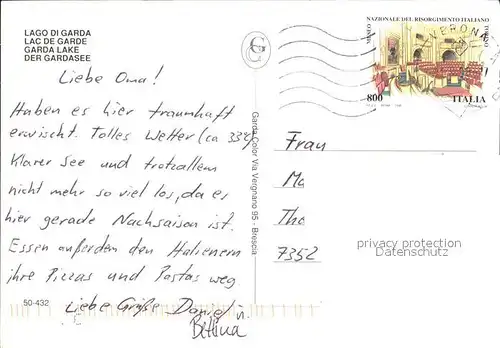 LAGO DI GARDA
LAC DE GARDE
GARDA LAKE
DER GARDASEE
Liebe Oma!
Haben es hier traumhaft
erwischt. Tolles Wetter (ca 33°C)
Klarer See und trotzallem
nicht mehr so viel los, da es
hier gerade Nachsaison ist.
Essen außerdem den Italienern
ihre Pizzas und Pastas weg
Liebe Grüße Daniel u.
Bettina
50-432
Garda Color Via Vergnano 95 - Brescia
MUSEO NAZIONALE DEL RISORGIMENTO ITALIANO TORINO
800 ITALIA
VERONA
Frau
Ma
Tho
7352
privacy protection
Datenschutz